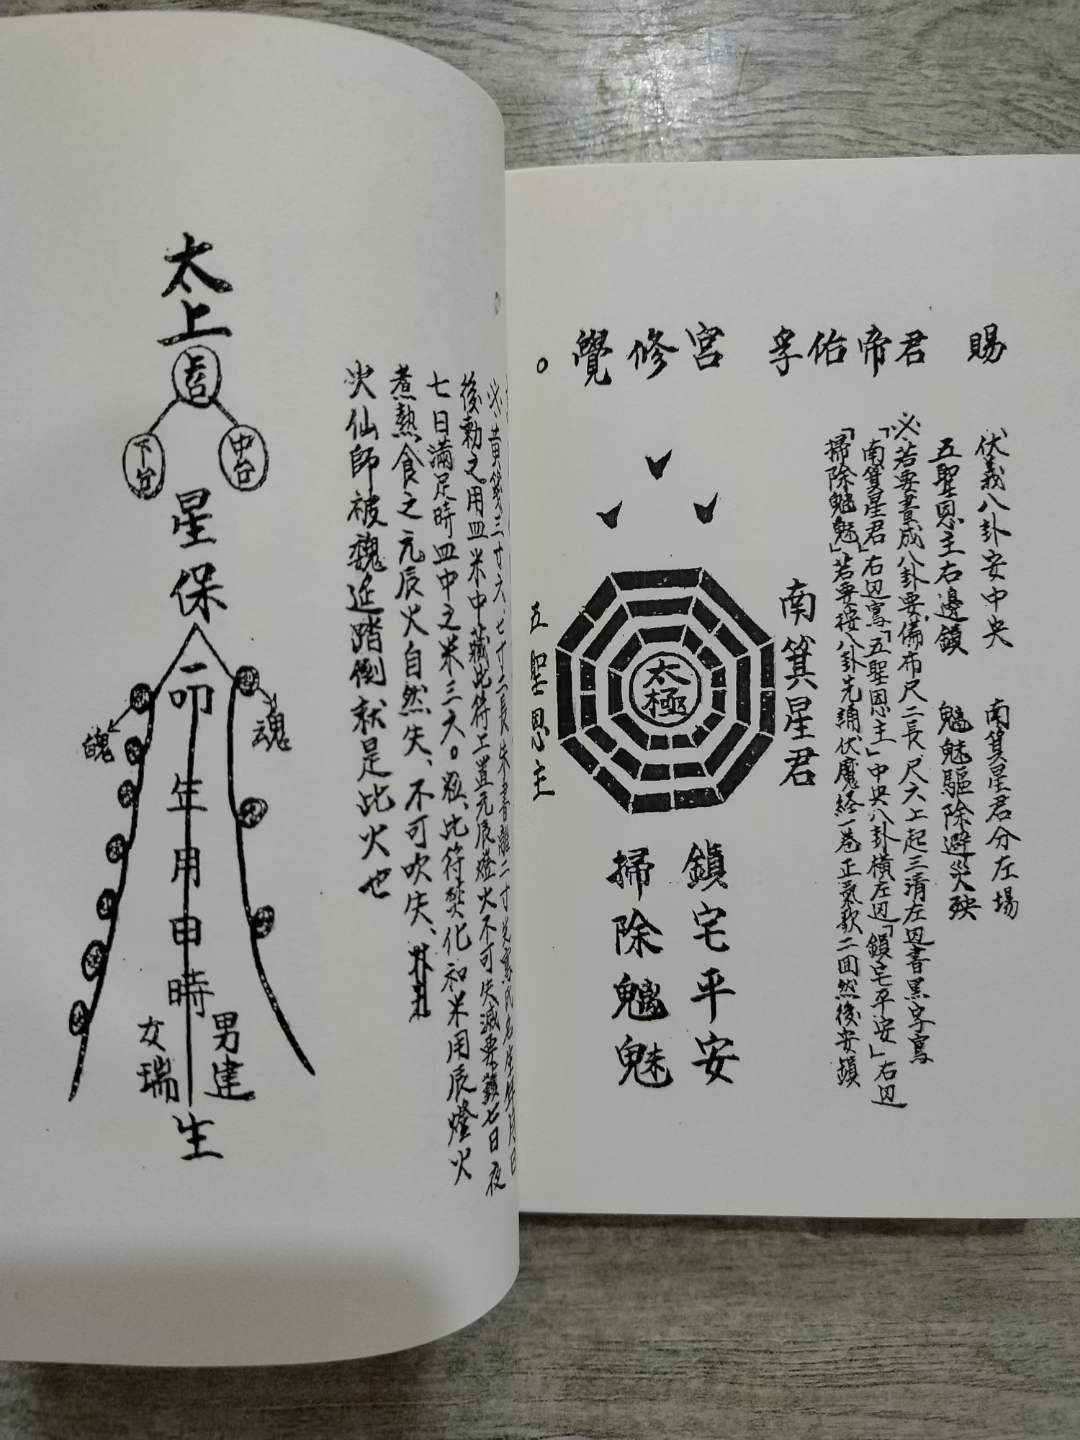 賜
孚佑帝君
修宮
覺
。
伏義八卦安中央
南箕星君分左場
五聖恩主右邊鎮
魑魅驅除避災殃
若要書成八卦要備布尺二長尺六上起三清左边書黑字寫
「南箕星君」右边寫「五聖恩主」中央八卦橫左边「鎮宅平安」右边
「掃除魑魅」若要按八卦先誦伏魔経一卷正氣歌二回然後安鎮
南箕星君
太極
五聖恩主
鎮宅平安
掃除魑魅
黃箋三寸六、七寸二長朱書
後勅之用皿米中藏此符上置元辰燈火不可失滅要鎮七日夜
七日滿足時皿中之米三六。粒、此符焚化和米用辰燈火
煮熱食之元辰火自然失、不可吹失、
火仙師被魏延踏倒就是此火也
太上
台
中台
下台
星保
年用申時
男建
女瑞
生
魂
魄